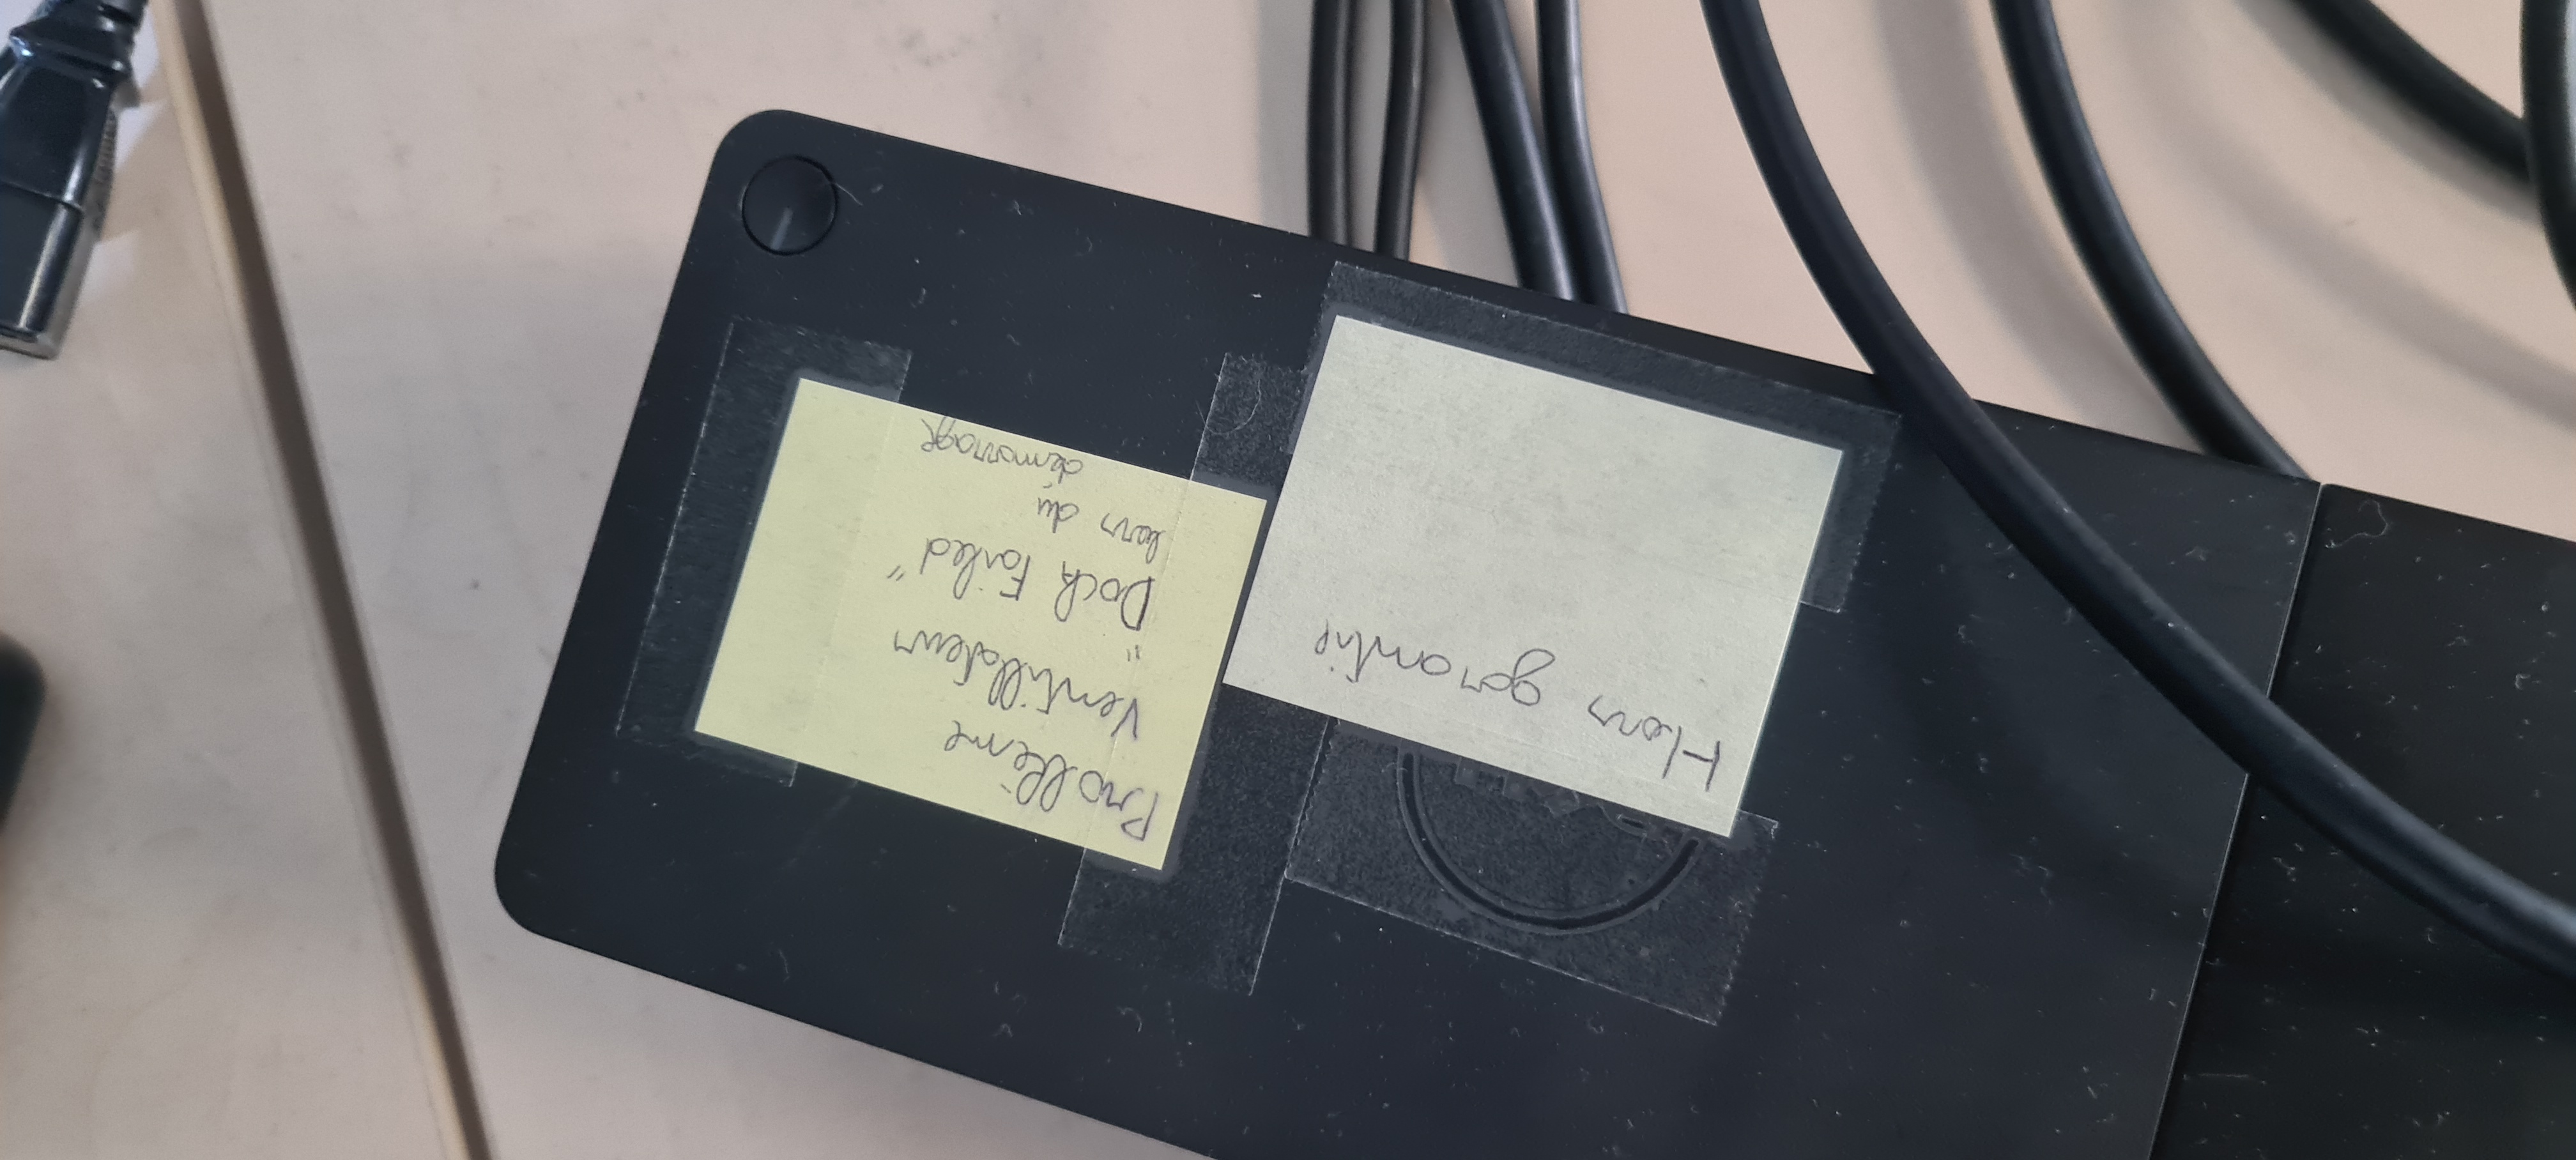 Problème
Ventillateur
"Dock Failed"
lors du
démarrage
Hors garantie